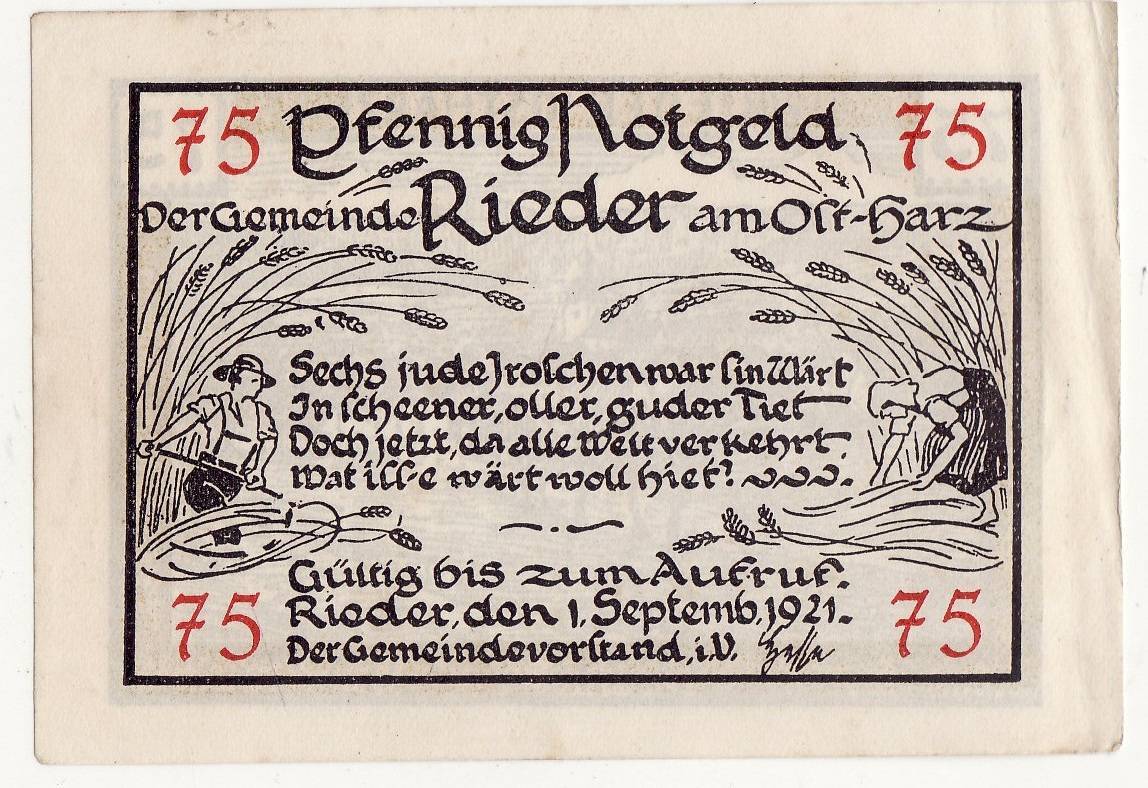 75 Pfennig Notgeld 75
Der Gemeinde Rieder am Ost-Harz
Sechs jude Jroschen war sin Wärt
In scheener, oller, guder Tiet
Doch jetzt, da alle Welt verkehrt.
Wat iss-e wärt woll hiet?
Gültig bis zum Aufruf.
75 Rieder, den 1. Septemb. 1921. 75
Der Gemeindevorstand, i.V. Hesse